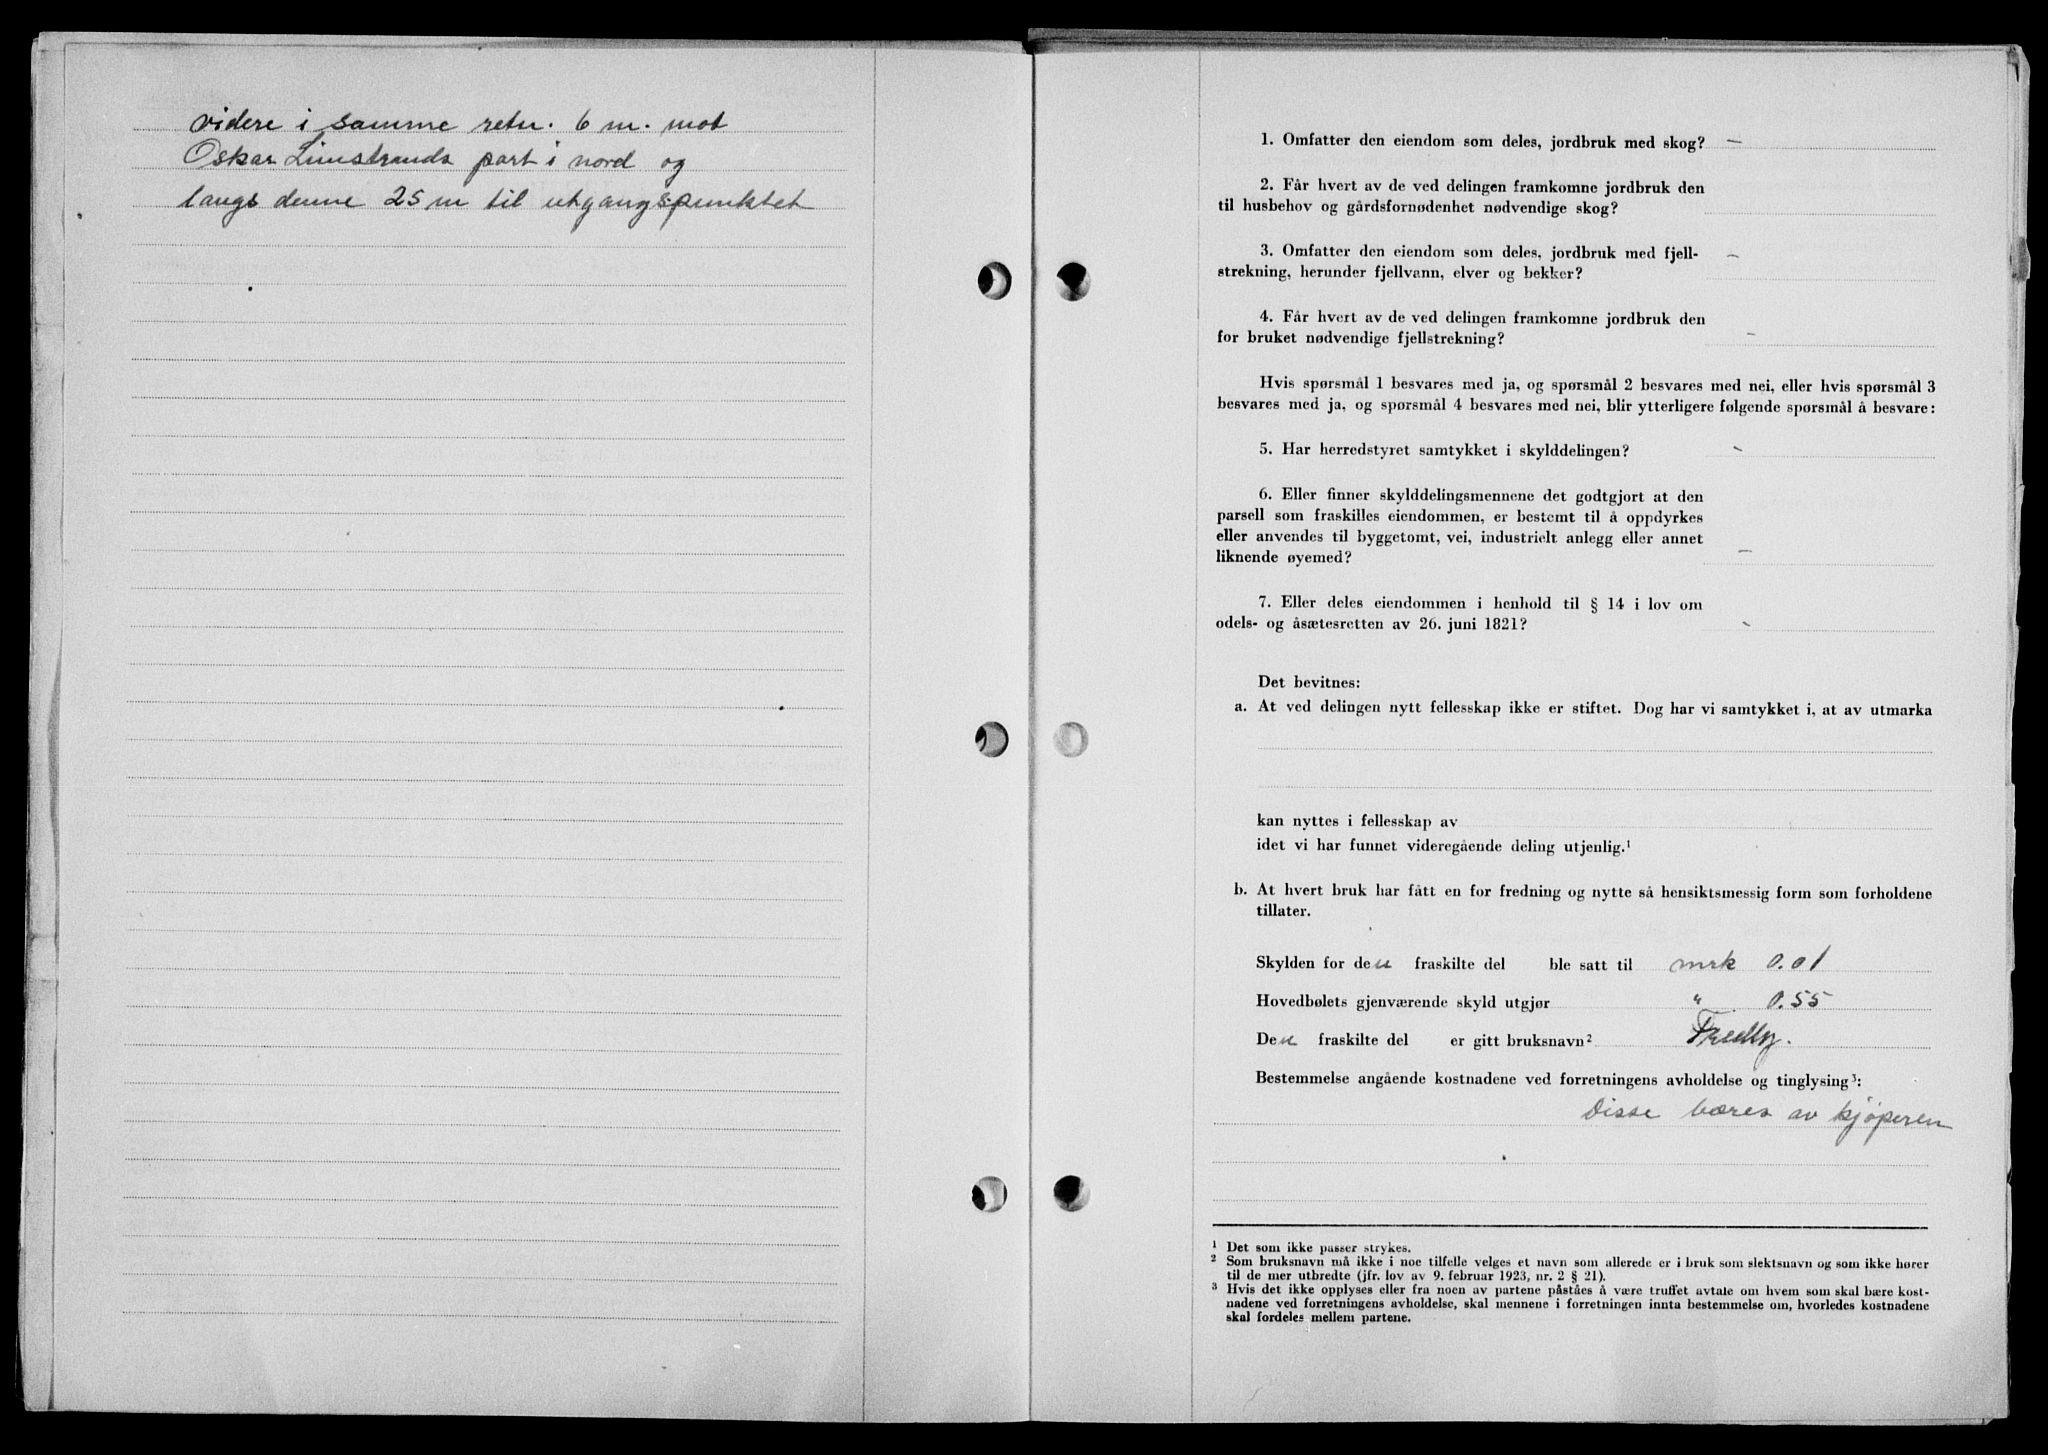 videre i samme retn. 6 m. mot
Oskar Limstrands part i nord og
langs denne 25 m til utgangspunktet
1. Omfatter den eiendom som deles, jordbruk med skog? –
2. Får hvert av de ved delingen framkomne jordbruk den
til husbehov og gårdsfornødenhet nødvendige skog?
3. Omfatter den eiendom som deles, jordbruk med fjell- –
strekning, herunder fjellvann, elver og bekker?
4. Får hvert av de ved delingen framkomne jordbruk den
for bruket nødvendige fjellstrekning? –
Hvis spørsmål 1 besvares med ja, og spørsmål 2 besvares med nei, eller hvis spørsmål 3
besvares med ja, og spørsmål 4 besvares med nei, blir ytterligere følgende spørsmål å besvare:
5. Har herredstyret samtykket i skylddelingen? –
6. Eller finner skylddelingsmennene det godtgjort at den
parsell som fraskilles eiendommen, er bestemt til å oppdyrkes
eller anvendes til byggetomt, vei, industrielt anlegg eller annet
liknende øyemed? –
7. Eller deles eiendommen i henhold til § 14 i lov om
odels- og åsætesretten av 26. juni 1821? –
Det bevitnes:
a. At ved delingen nytt fellesskap ikke er stiftet. Dog har vi samtykket i, at av utmarka
kan nyttes i fellesskap av
idet vi har funnet videregående deling utjenlig.¹
b. At hvert bruk har fått en for fredning og nytte så hensiktsmessig form som forholdene
tillater.
Skylden for den fraskilte del ble satt til mrk 0.01
Hovedbølets gjenværende skyld utgjør " 0.55
Den fraskilte del er gitt bruksnavn² Fredly.
Bestemmelse angående kostnadene ved forretningens avholdelse og tinglysing³:
Disse bæres av kjøperen
¹ Det som ikke passer strykes.
² Som bruksnavn må ikke i noe tilfelle velges et navn som allerede er i bruk som slektsnavn og som ikke hører
til de mer utbredte (jfr. lov av 9. februar 1923, nr. 2 § 21).
³ Hvis det ikke opplyses eller fra noen av partene påståes å være truffet avtale om hvem som skal bære kost-
nadene ved forretningens avholdelse, skal mennene i forretningen innta bestemmelse om, hvorledes kostnadene
skal fordeles mellem partene.